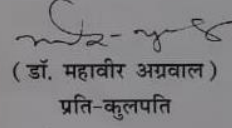 ( डॉ. महावीर अग्रवाल )
प्रति-कुलपति